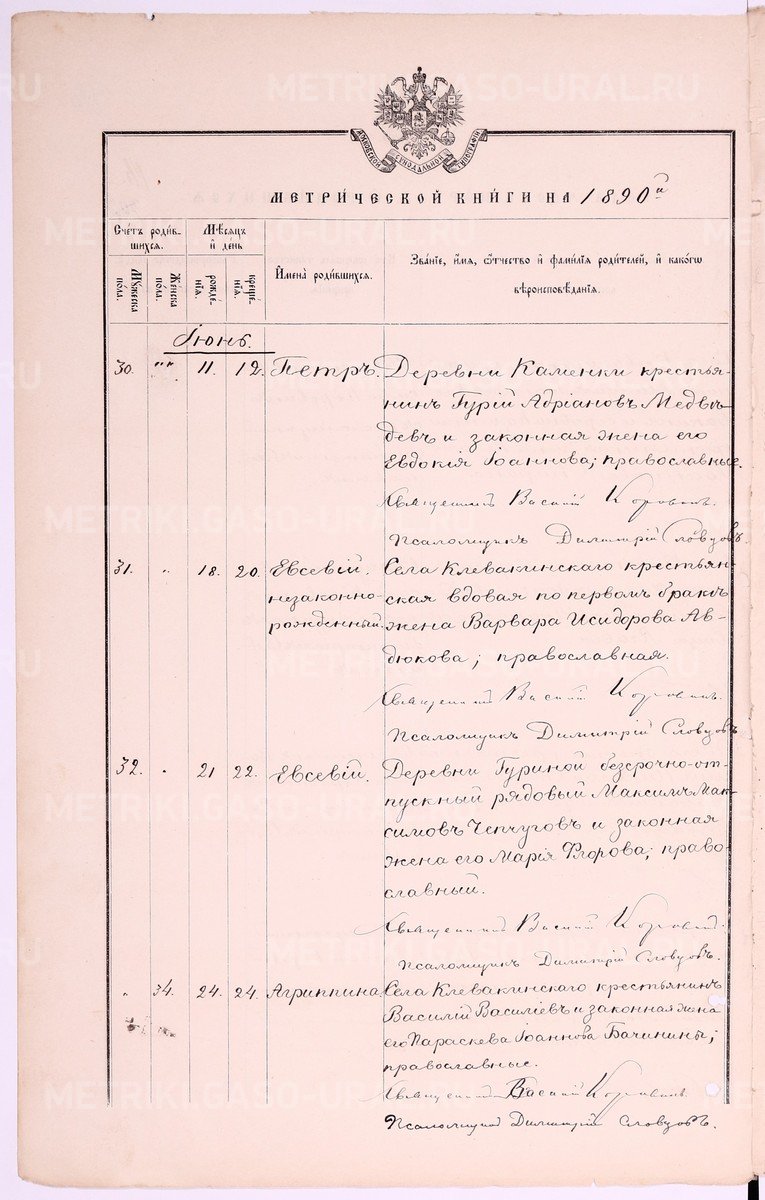 МОСКОВСКОЙ СѴНОДАЛЬНОЙ ТИПОГРАФІИ
МЕТРИ́ЧЕСКОЙ КНИ́ГИ НА 1890й
Сче́тъ роди́в-
шихся.
Мѣ́сяцъ
и҆ де́нь
Мꙋ́жеска
по́ла.
Же́нска
по́ла.
рожде́-
нїя.
креще́-
нїя.
И҆мена̀ роди́вшихся.
Зва́нїе, и҆́мя, ѻ҆́тчество и҆ фами́лїя роди́телей, и҆ како́гѡ
вѣроисповѣ́данїя.
Іюнь.
30. "" 11. 12. Петръ. Деревни Каменки крестья-
нинъ Гурій Адріановъ Медвѣ-
девъ и законная жена его
Евдокія Іоаннова; православные.
Священникъ Василій Коровинъ.
Псаломщикъ Димитрій Словцовъ.
31. " 18. 20. Евсевій. Села Клевакинскаго крестьян-
незаконно- ская вдовая по первомъ бракѣ
рожденный. жена Варвара Исидорова Ав-
дюкова; православная.
Священникъ Василій Коровинъ.
Псаломщикъ Димитрій Словцовъ
32. " 21 22. Евсевій. Деревни Гуриной безсрочно-от-
пускный рядовый Максимъ Мак-
симовъ Чепчуговъ и законная
жена его Марія Флорова; право-
славный.
Священникъ Василій Коровин.
Псаломщикъ Димитрій Словцовъ.
" 34. 24. 24. Агриппина. Села Клевакинскаго крестьянинъ
Василій Василіевъ и законная жена
его Параскева Іоаннова Бачинины;
православные.
Священникъ Василій Коровинъ.
Псаломщикъ Димитрій Словцовъ.
METRIKI.GASO-URAL.RU